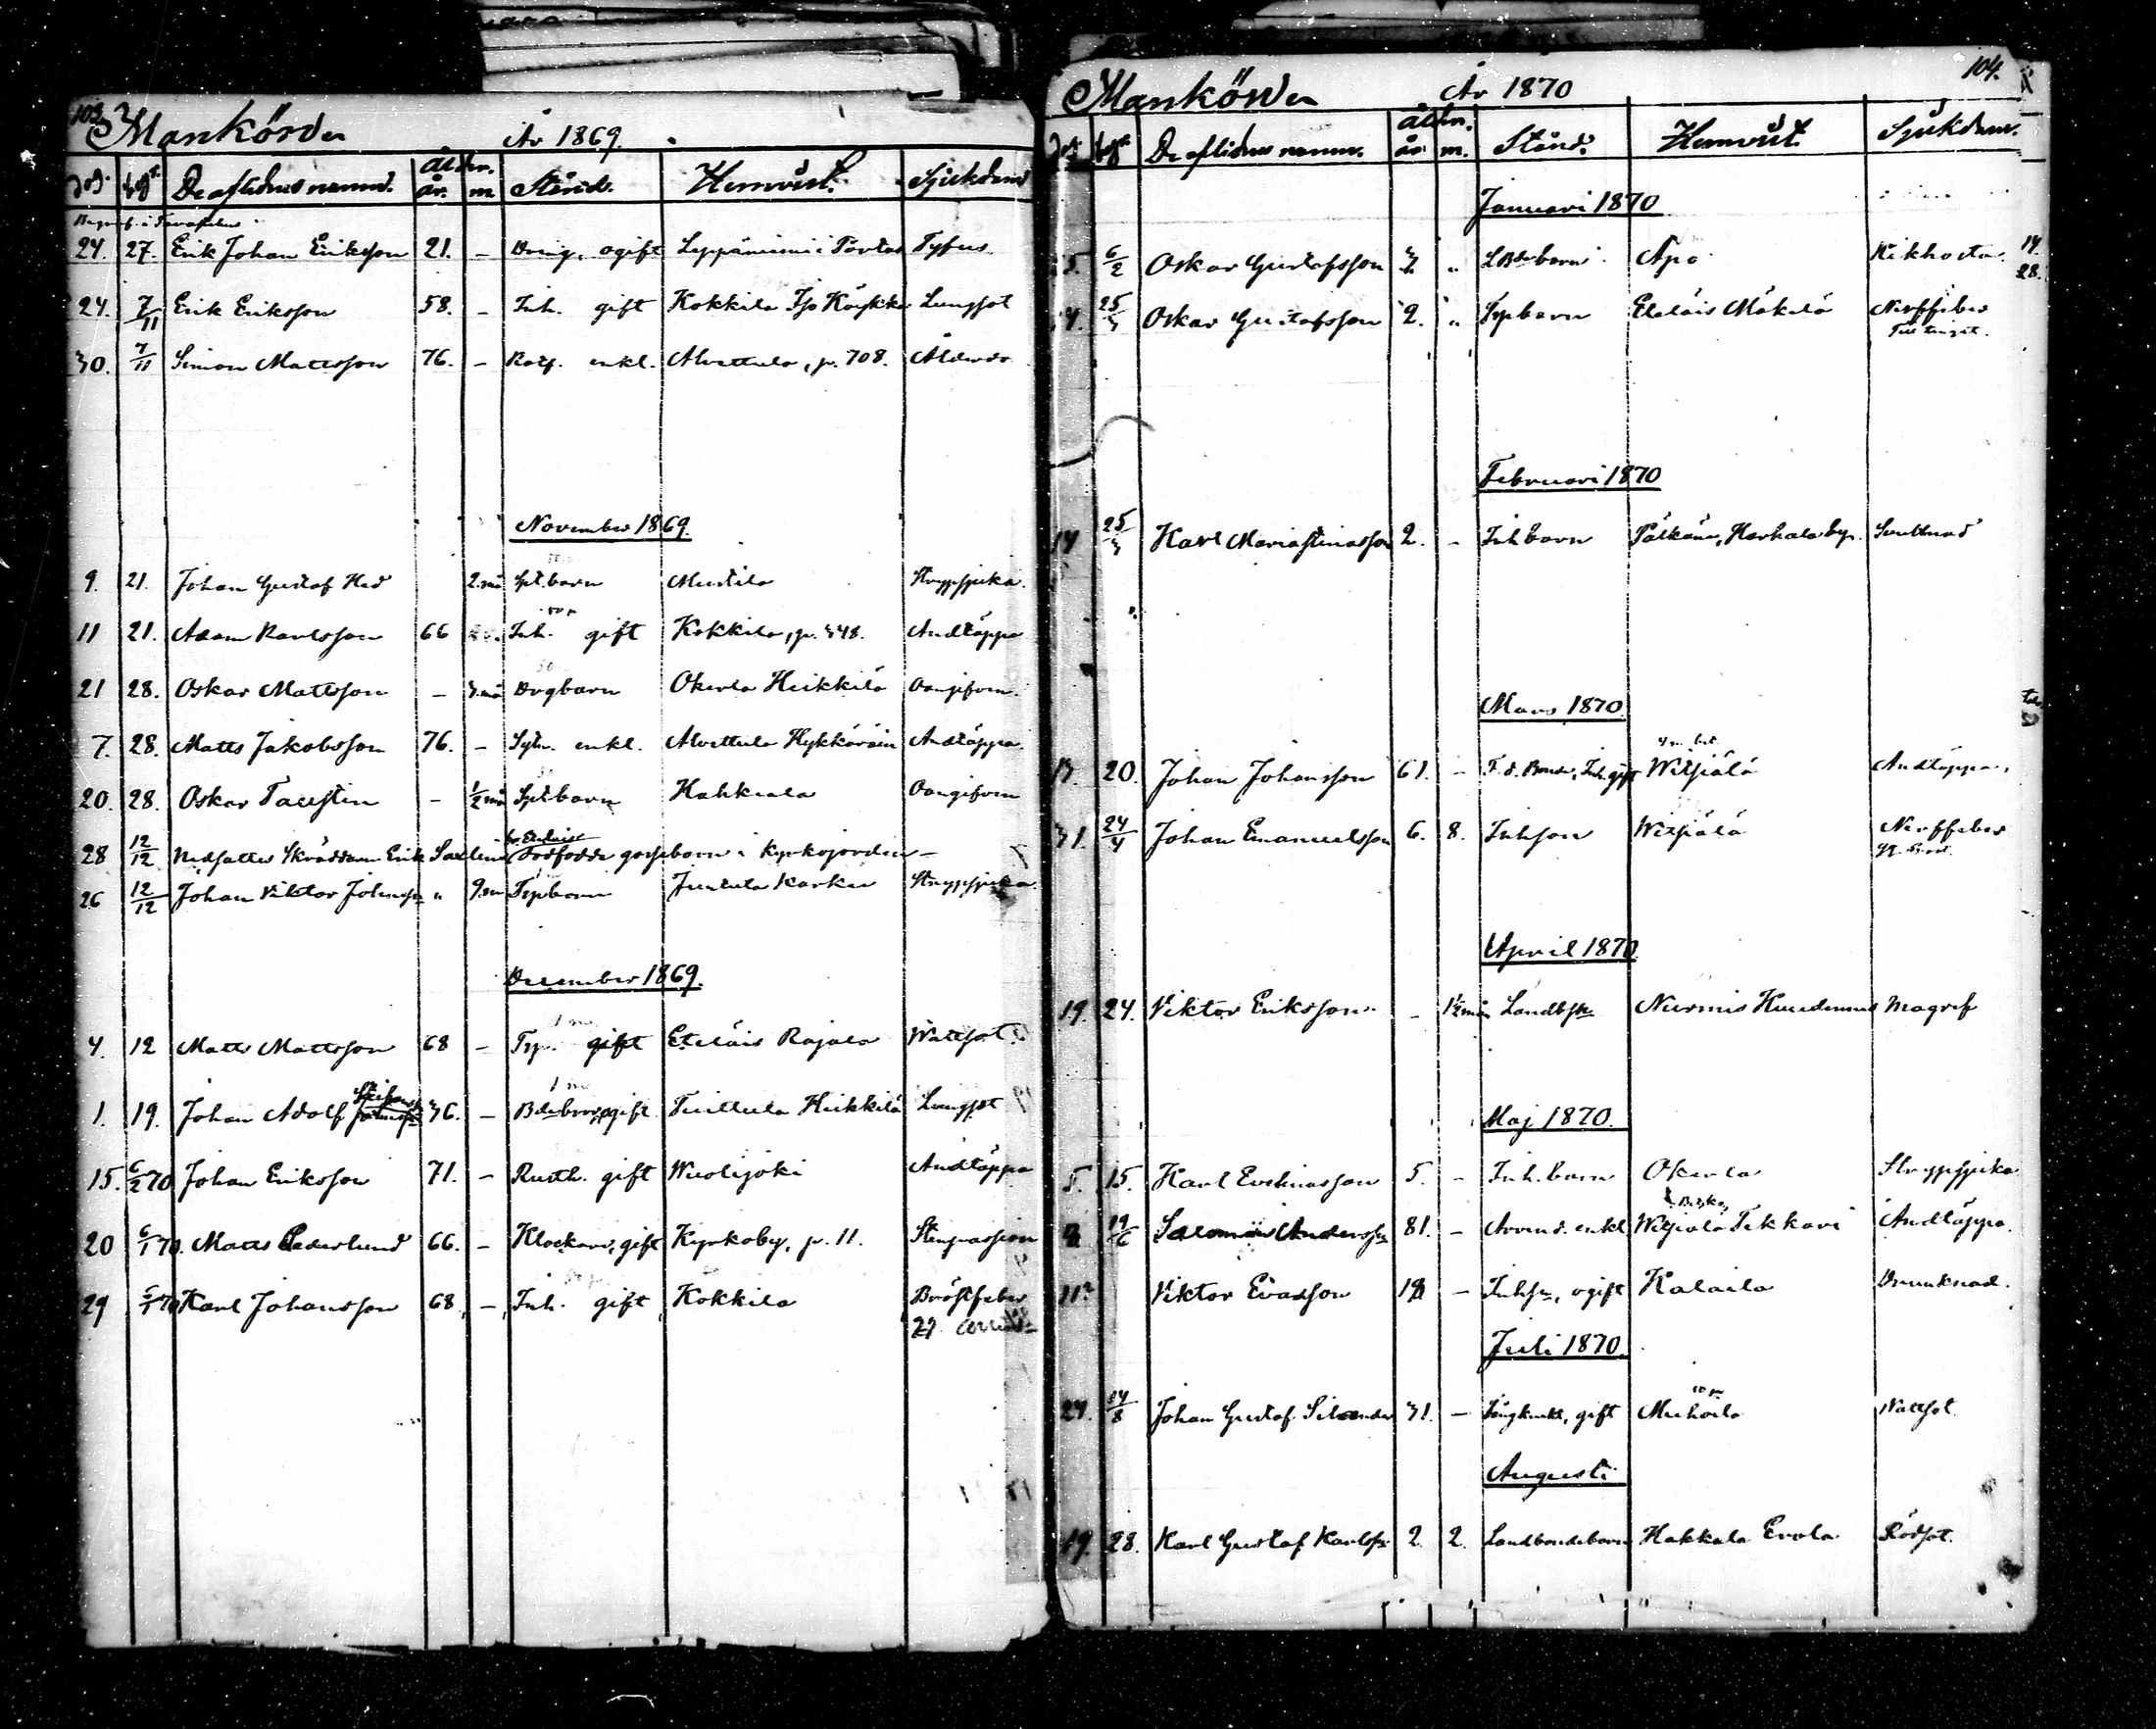 103.
Mankönda År 1869.
död. begr. De aflidnes namn. Ålder. år. m. Stånd. Hemvist. Sjukdom
Begraf. i Tavastehus
24. 27. Erik Johan Eriksson 21. – Dräng, ogift Leppäniemi i Tyfus.
24. 7/11 Erik Eriksson 58. – Inh. gift Kokkila Iso Köykkä Lungsot
30. 7/11 Simon Mattsson 76. – Rotf. enkl. Alvettula, p. 708. Ålderdo
November 1869.
9. 21. Johan Gustaf Hed 2. må Spt.barn Mustila Strypsjuka.
11 21. Adam Karlsson 66 Inh. gift Kokkila, p. 348. Andtäppa
21 28. Oskar Mattsson – 3. må Drgbarn Okerla Heikkilä Oangifven.
7. 28. Matts Jakobsson 76. – Sytn. enkl. Alvettula Hykköräin Andtäppa.
20. 28. Oskar Taustin – 1/2 må Sptbarn Hahkiala Oangifven
28 12/12 Nedsatter Skräddaren Erik Saxlins dödfödda gossebarn i kyrkojorden –
26 12/12 Johan Viktor Johansson " 9 m Tpbarn Juttila Karku Strypsjuka.
December 1869.
4. 12 Matts Mattsson 68 – Tp. gift Eteläis Rajala Wattsot.
1. 19. Johan Adolf 36. – Bdebror, ogift Tuittula Heikkilä Lungsot
15. 6/2 70 Johan Eriksson 71. – Rusth. gift Wuolijoki Andtäppa
20 6/1 70. Matts Cederlund 66. – Klockare, gift Kyrkoby, p. 11. Stenpassion
29 6/1 70 Karl Johansson 68. – Inh. gift Kokkila Bröstfeber
104.
Mankönda År 1870
död. begr. De aflidnes namn. Ålder. år. m. Stånd. Hemvist. Sjukdom.
Januari 1870
6/2 Oskar Gustafsson " LBdebarn Apo Kikhosta.
25/3 Oskar Gustafsson 2. " Tpbarn Eteläis Mäkelä Nerffeber
Till tinget.
Februari 1870
14 25/3 Karl Mariastinasson 2. – Inhbarn Pälkäne, Harhala by. Smittnad
Mars 1870.
13 20. Johan Johansson 61. – F. d. Bonde, Inh. gift Witsiälä Andtäppa.
31. 24/4 Johan Emanuelsson 6. 8. Inhson Witsiälä Nerffeber
April 1870
19. 24. Viktor Eriksson – 1 1/2 mån Landbsn Nurmis Magref
Maj 1870.
5. 15. Karl Evelinasson 5. – Inh. barn Okerla Strypsjuka
19/6 Salomon Andersson 81. – Arrend. enkl Witsiälä Tekkari Andtäppa.
11? Viktor Evasson – Inhsn, ogift Kalaila Drunknad.
Juli 1870.
24. 14/8 Johan Gustaf Silander 31. – Fängknekt, gift Muhoila Wattsot.
Augusti
19. 28. Karl Gustaf Karlsson 2. 2. Landbondebarn Hakkala Evola Rödsot.